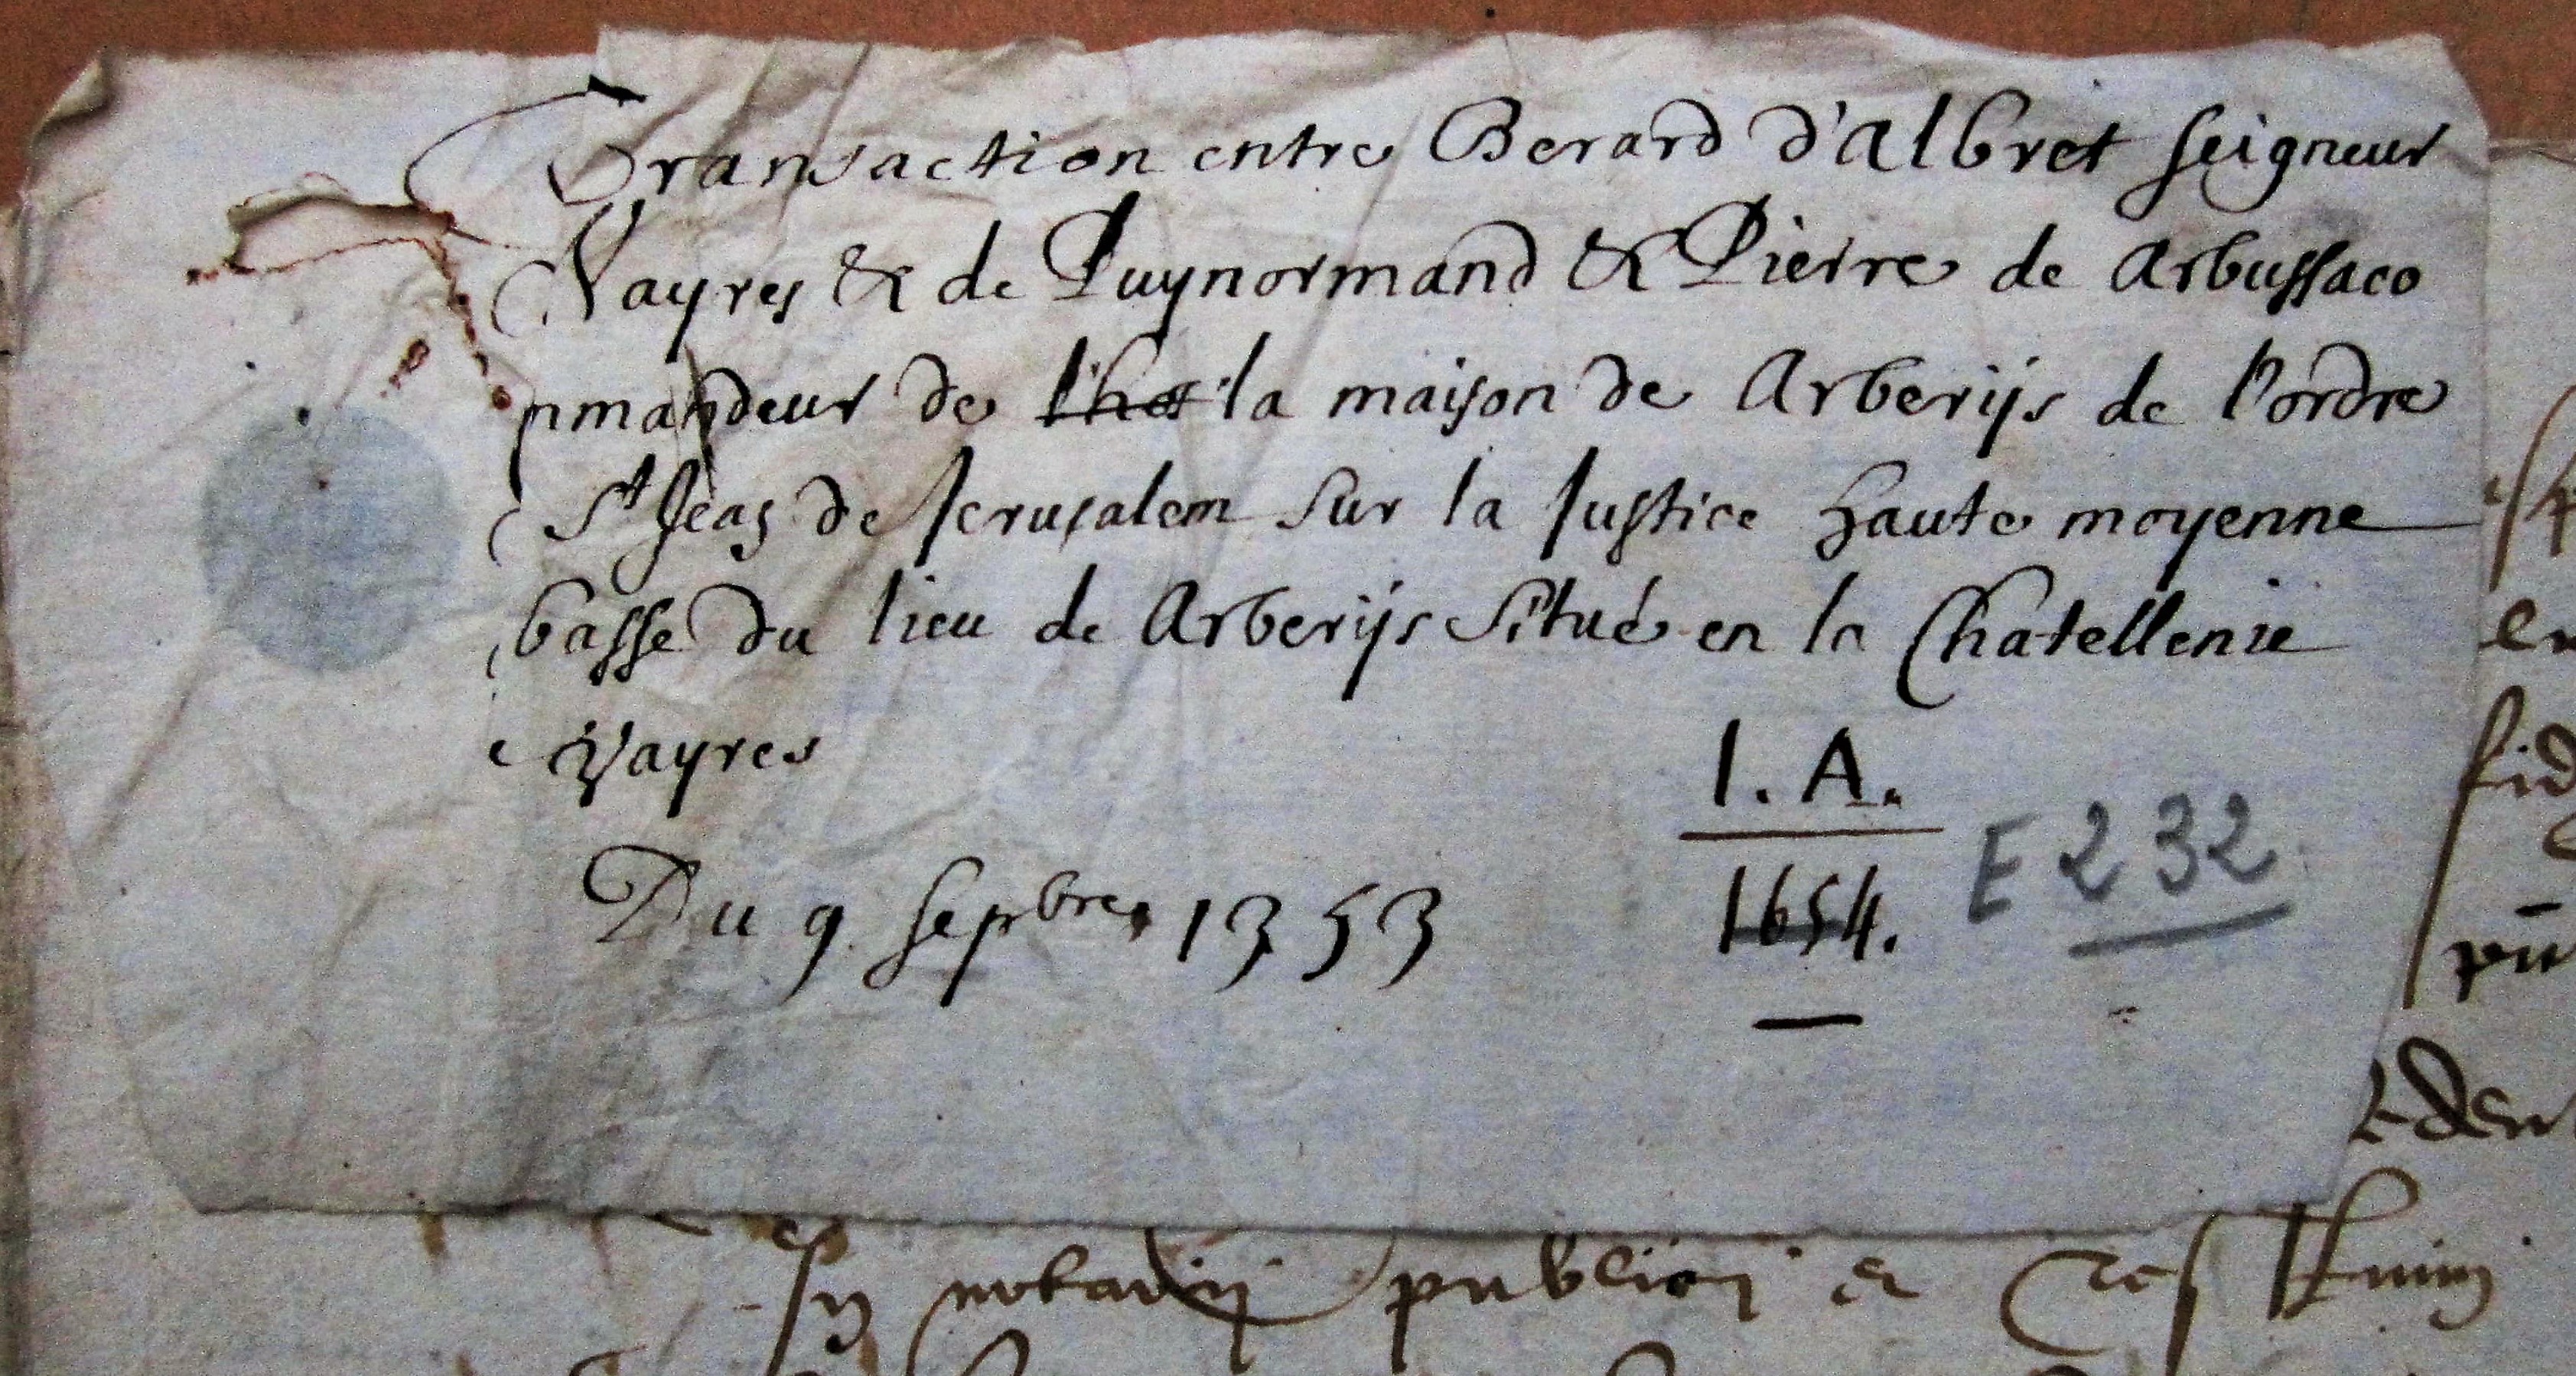 Transaction entre Berard d'Albret seigneur
Vayres & de Puynormand & Pierre de Arbussaco
mmandeur de l'hos la maison de Arberijs de l'ordre
St Jean de Jerusalem sur la Justice haute moyenne
basse du lieu de Arberijs situé en la Chatellenie
e Vayres
I. A.
1654.
E 232
Du 9 sepbre 1353
notarij publici et